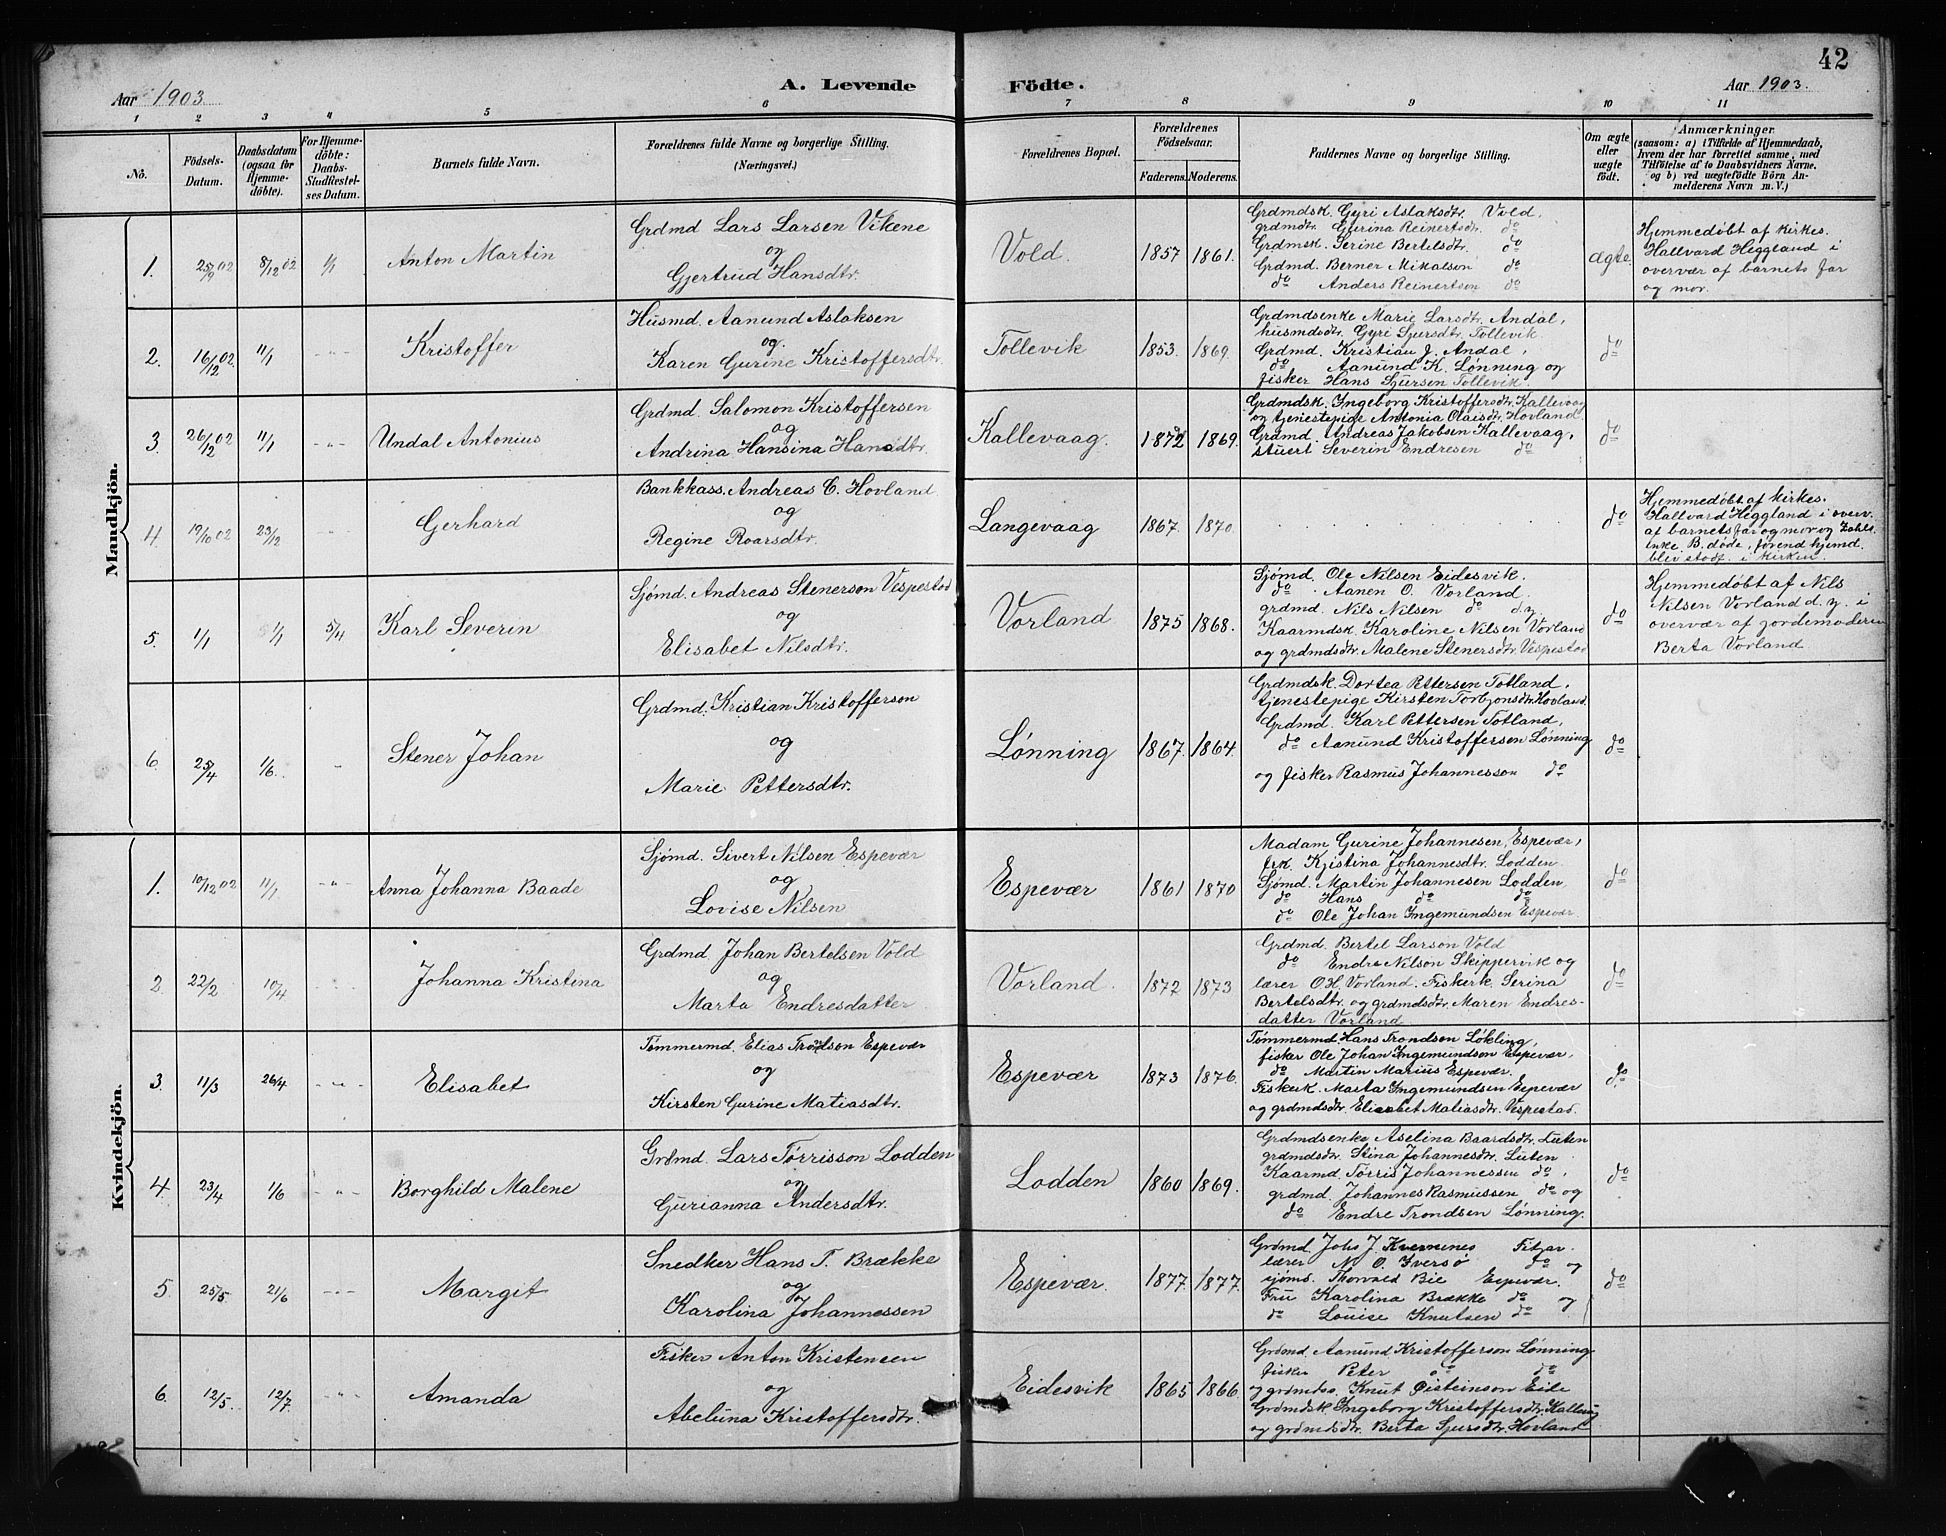 42
Aar 1903
A. Levende
Födte.
Aar 1903.
1 2 3 4 5 6 7 8 9 10 11
No.
Födsels-
Datum.
Daabsdatum
(ogsaa for
Hjemme-
döbte).
For Hjemme-
döbte:
Daabs-
Stadfæstel-
ses Datum.
Barnets fulde Navn.
Forældrenes fulde Navne og borgerlige Stilling.
(Næringsvei.)
Forældrenes Bopæl.
Forældrenes
Födselsaar.
Faderens. Moderens.
Faddernes Navne og borgerlige Stilling.
Om ægte
eller
uægte
født.
Anmærkninger
(saasom: a) i Tilfælde af Hjemmedaab,
hvem der har forrettet samme, med
Tilföielse af to Daabsvidners Navne.
og b) ved uægtefödte Börn An-
melderens Navn m. V.)
Mandkjön.
1. 25/9 02 8/12 02 1/1 Anton Martin
Grdmd Lars Larsen Vikene
og
Gjertrud Hansdtr.
Vold. 1857 1861.
Grdmdsk. Gyri Aslaksdtr. Vold.
grdmdtr. Gurina Reinertsdtr. do
Grdmsk. Serine Bertelsdtr. do
Grdmd. Berner Mikalson do
do Anders Reinertson do
ægte.
Hjemmedøbt af kirkes.
Hallvard Heggland i
overvær af barnets far
og mor.
2. 16/12 02. 11/1 -"- Kristoffer
Husmd. Aanund Aslaksen
og
Karen Gurine Kristoffersdtr.
Tollevik 1853. 1869.
Grdmdsenke Marie Larsdtr. Andal,
husmdsdtr. Gyri Sjursdtr. Tollevik.
Grdmd. Kristian J. Andal,
do Aanund K. Lønning og
fisker Hans Sjursen Tollevik.
do
3. 26/12 02 11/1 -"- Undal Antonius
Grdmd. Salomon Kristoffersen
og
Andrina Hansina Hansdtr.
Kallevaag. 1872 1869.
Grdmdsk. Ingeborg Kristoffersdtr. Kallevaag
og tjenestepige Antonia Olaisdtr. Hovland
Grdmd. Andreas Jakobsen Kallevaag,
stuert Severin Endresen do
do
4. 19/10 02 23/12 -"- Gerhard
Bankkass. Andreas C. Hovland
og
Regine Roarsdtr.
Langevaag 1867. 1870.
do
Hjemmedøbt af kirkes.
Hallvard Heggland i overv.
af barnets far og mor og
enke B. døde, førend hjemd.
blev stadf. i kirken.
5. 1/1 1/1 5/4 Karl Severin
Sjømd. Andreas Stenerson Vespestad
og
Elisabet Nilsdtr.
Vorland 1875 1868.
Sjømd. Ole Nilsen Eidesvik.
do Aanen O. Vorland.
grdmd. Nils Nilsen do d.y.
Kaarmdsk. Karoline Nilsen Vorland
og grdmdsdtr. Malene Stenersdtr. Vespestad
do
Hjemmedøbt af Nils
Nilsen Vorland d. y. i
overvær af jordemoderen
Berta Vorland
6. 25/4 1/6. - Stener Johan
Grdmd. Kristian Kristofferson
og
Marie Pettersdtr.
Lønning 1867. 1864.
Grdmdsk. Dortea Pettersen Totland,
tjenestepige Kirsten Torbjonsdtr. Hovland.
Grdmd. Karl Pettersen Totland,
do Aanund Kristoffersen Lønning
og fisker Rasmus Johannesson do
do
Kvindekjön.
1. 10/12 02 11/1 -"- Anna Johanna Baade
Sjømd. Sivert Nilsen Espevær
og
Lovise Nilsen
Espevær 1861 1870
Madam Gurine Johannesen, Espevær,
frk. Kjistina Johannesdtr. Lodden.
Sjømd. Martin Johannesen Lodden,
do Hans do do
do Ole Johan Ingemundsen Espevær.
do
2. 22/2 10/4 Johanna Kristina
Grdmd Johan Bertelsen Vold
og
Marta Endresdatter
Vorland. 1872 1873
Grdmd. Bertel Larson Vold
do Endre Nilson Skippervik og
lærer O.H. Vorland. Fiskerk. Serina
Bertelsdtr. og grdmdsdtr. Maren Endres-
datter Vorland
do
3. 11/3 26/4 -"- Elisabet
Tømmermd. Elias Trondson Espevær
og
Kirsten Gurine Matiasdtr.
Espevær 1873 1876.
Tømmermd Hans Trondson Løkling,
fisker Ole Johan Ingemundson Espevær,
do Martin Marius Espevær.
Fiskerk. Marta Ingemundsen Espevær
og grdmdsdtr. Elisabet Matiasdtr. Vespestad.
do
4. 23/4 1/6 -"- Borghild Malene
Grdmd. Lars Tørrisson Lodden
og
Gurianna Andersdtr.
Lodden 1860 1869.
Grdmdsenke Aselina Baardsdtr. Luten
grdmdsdtr. Stina Johannesdtr. Luten
Kaarmd. Tørris Johannessen do,
grdmd. Johannes Rasmussen do og
do Endre Trondsen Lønning.
do
5. 25/5. 21/6 -"- Margit
Snedker Hans T. Brække
og
Karolina Johannessen
Espevær. 1877. 1877.
Grdmd. Johs J. Kvernenes Fitjar.
lærer M. O. Iversø do og
sjømd. Thorvald Bie Espevær.
Fru Karolina Brække do og
do Louise Knutsen do
do
6. 12/5. 12/7 -"- Amanda
Fisker Anton Kristensen
og
Abeluna Kristoffersdtr.
Eidesvik 1865 1866.
Grdmd Aanund Kristofferson Lønning
fisker Peter do do
og grdmdss. Knut Øisteinson Eide
Grdmdsk. Ingeborg Kristoffersdtr. Kallevg
og grdmdsdtr. Berta Sjursdtr. Hovland
do